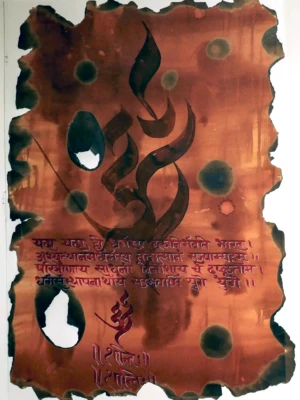 यदा यदा हि धर्मस्य ग्लानिर्भवति भारत।
अभ्युत्थानमधर्मस्य तदात्मानं सृजाम्यहम्।
परित्राणाय साधूनां विनाशाय च दुष्कृताम।
धर्मसंस्थापनार्थाय सम्भवामि युगे युगे।